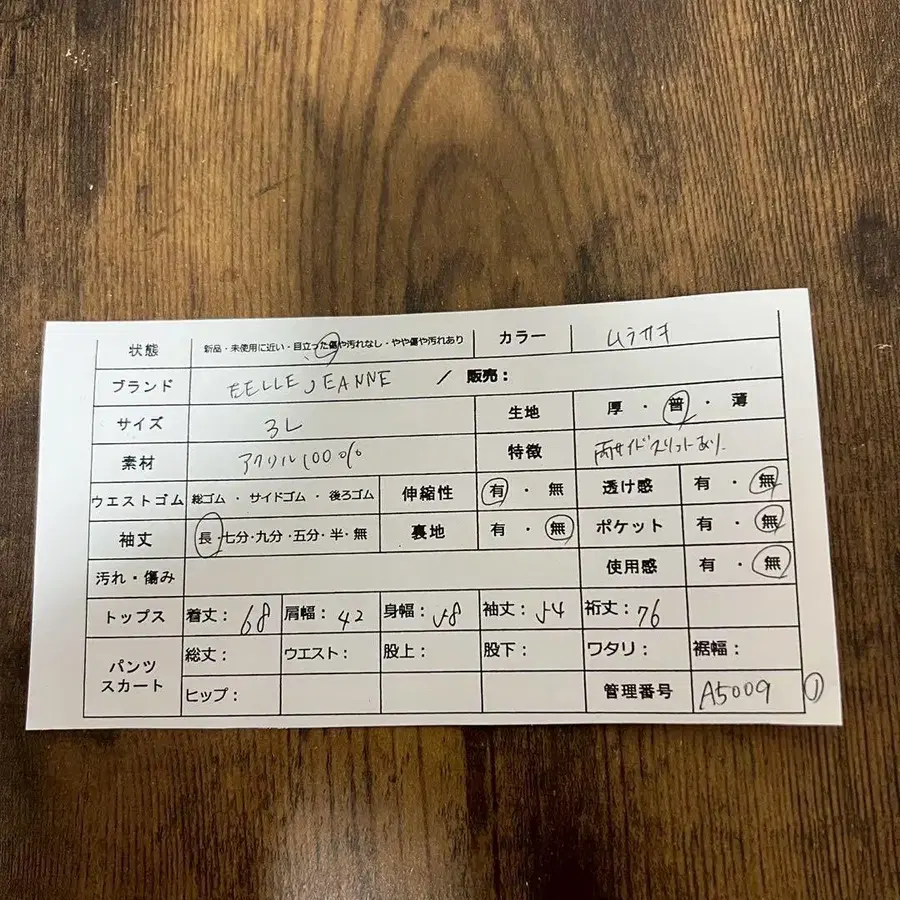 状態 新品・未使用に近い・目立った傷や汚れなし・やや傷や汚れあり カラー ムラサキ
ブランド BELLE JEANNE / 販売：
サイズ 3L 生地 厚・普・薄
素材 アクリル100% 特徴 両サイドスリットあり.
ウエストゴム 総ゴム・サイドゴム・後ろゴム 伸縮性 有・無 透け感 有・無
袖丈 長・七分・九分・五分・半・無 裏地 有・無 ポケット 有・無
汚れ・傷み 使用感 有・無
トップス 着丈：68 肩幅：42 身幅：58 袖丈：54 裄丈：76
パンツ スカート 総丈： ウエスト： 股上： 股下： ワタリ： 裾幅：
ヒップ： 管理番号 A5009 ①